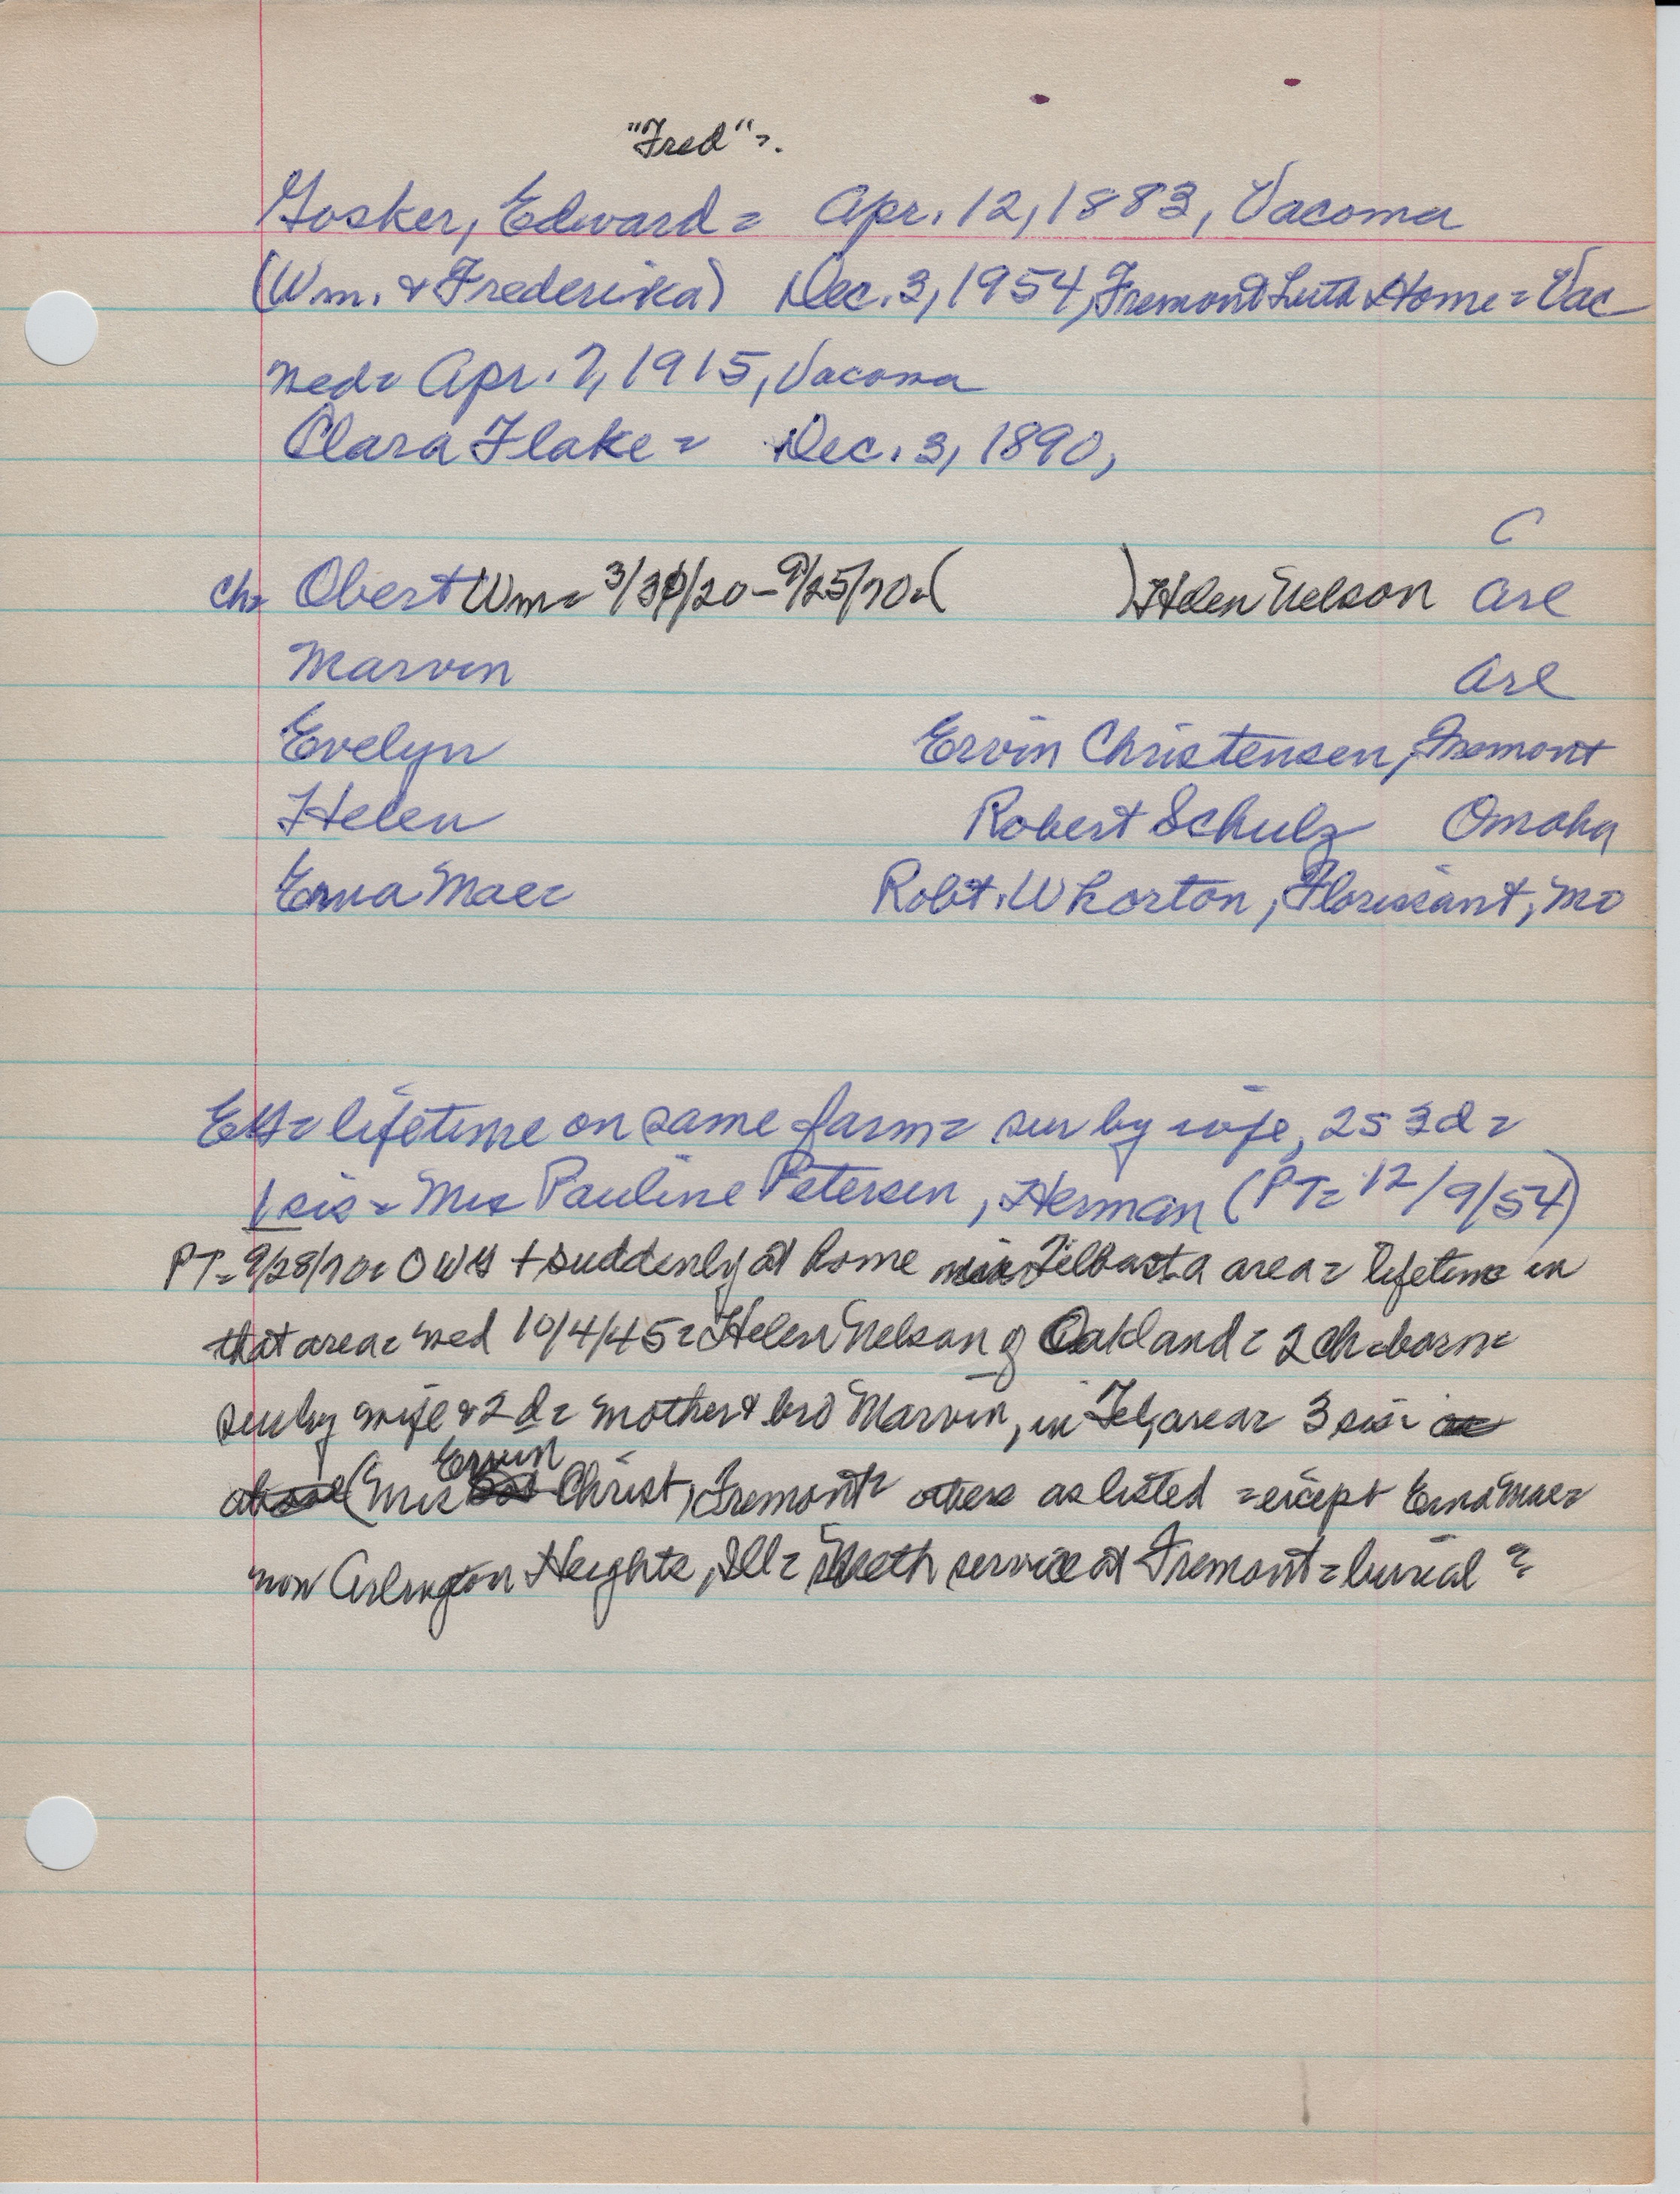 "Fred" =.
Gosker, Edward = Apr. 12, 1883, Vacoma
(Wm. & Frederika) Dec. 3, 1954, Fremont Luth Home = Vac
med = Apr. 7, 1915, Vacoma
Clara Flake = Dec. 3, 1890,
C
ch = Obert Wm = 3/31/20 - 9/25/70 = ( ) Helen Nelson Arl
Marvin Arl
Evelyn Ervin Christensen, Fremont
Helen Robert Schulz Omaha
Erna Mae = Robt. Whorton, Florissant, Mo
EG = lifetime on same farm = sur by wife, 2s 3d =
1 sis = Mrs Pauline Petersen, Herman (PT = 12/9/54)
PT = 9/28/70 = OWG + suddenly at home Telbasta area = lifetime in
that area = med 10/4/45 = Helen Nelson of Oakland = 2 ch = born =
sur by wife & 2 d = mother & bro Marvin, in Tel, area = 3 sis =
(Mrs Ervin Christ, Fremont = others as listed = except Erna Mae =
now Arlington Heights, Ill = Meth service at Fremont = burial ?